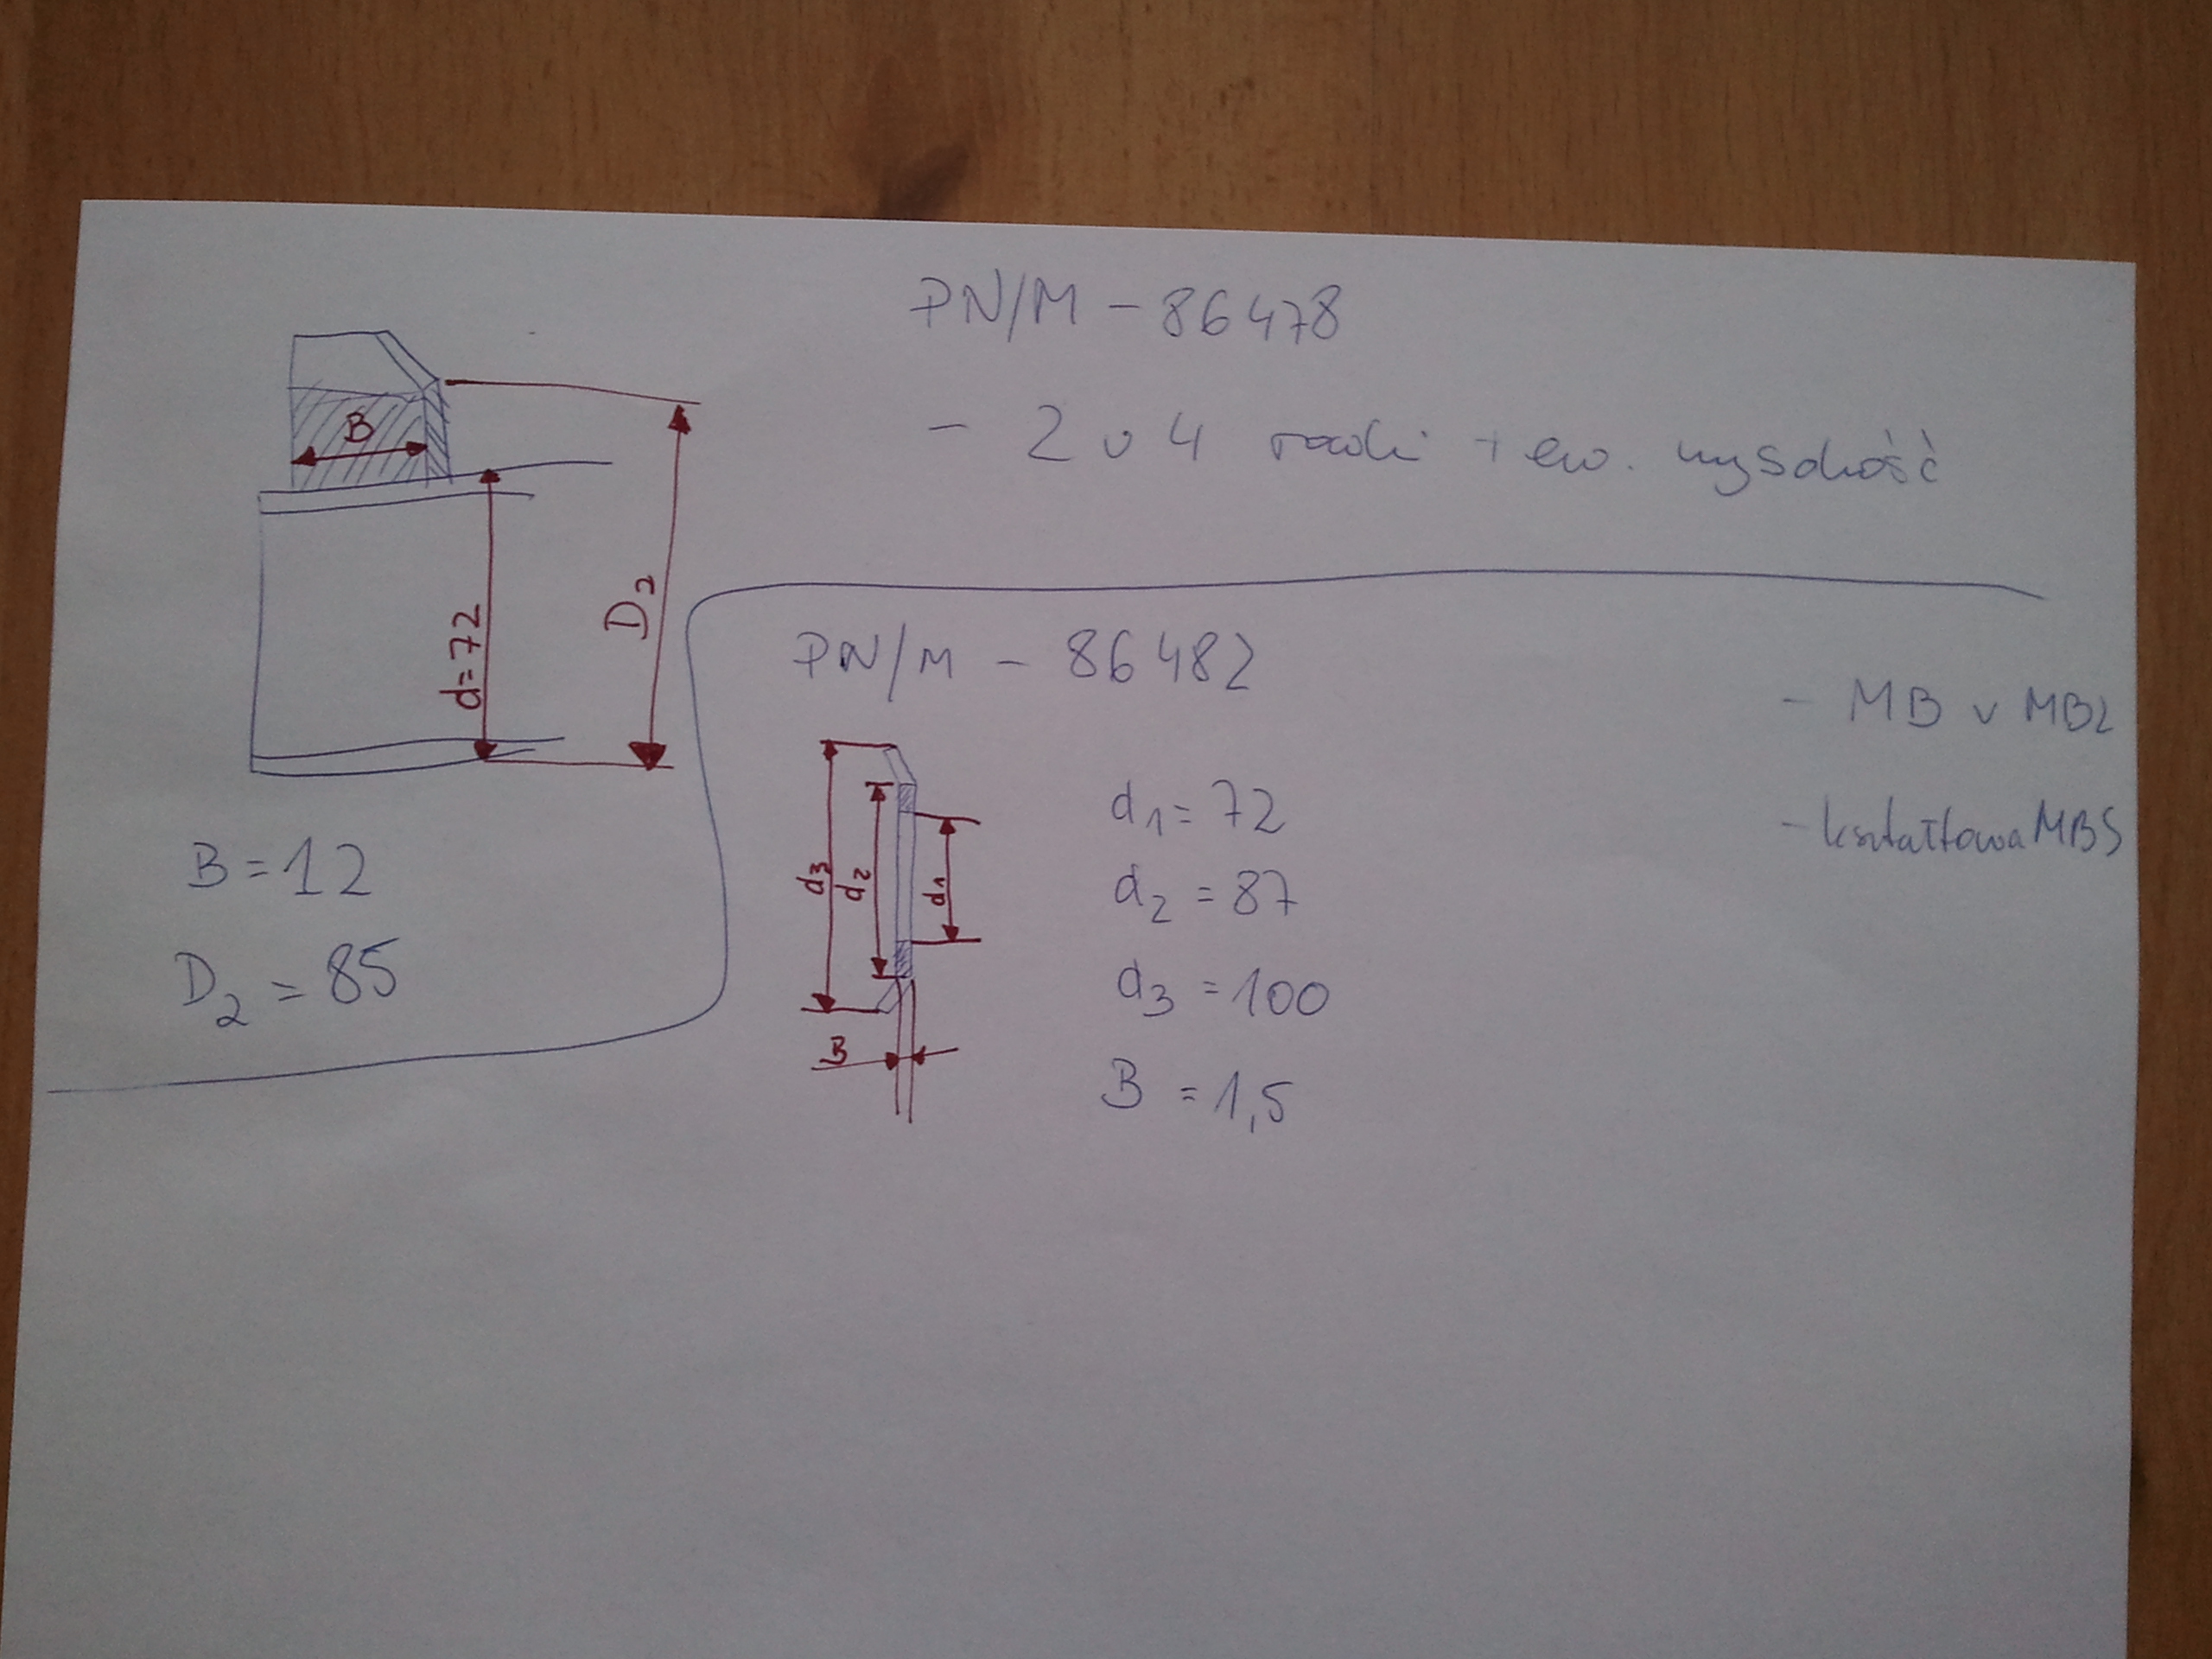 PN/M - 86478
- 2 v 4 rowki + ew. wysokość
B
d=72
D₂
B = 12
D₂ = 85
PN/M - 86482
- MB v MB2
- kształtowa MBS
d₃
d₂
d₁
B
d₁ = 72
d₂ = 87
d₃ = 100
B = 1,5